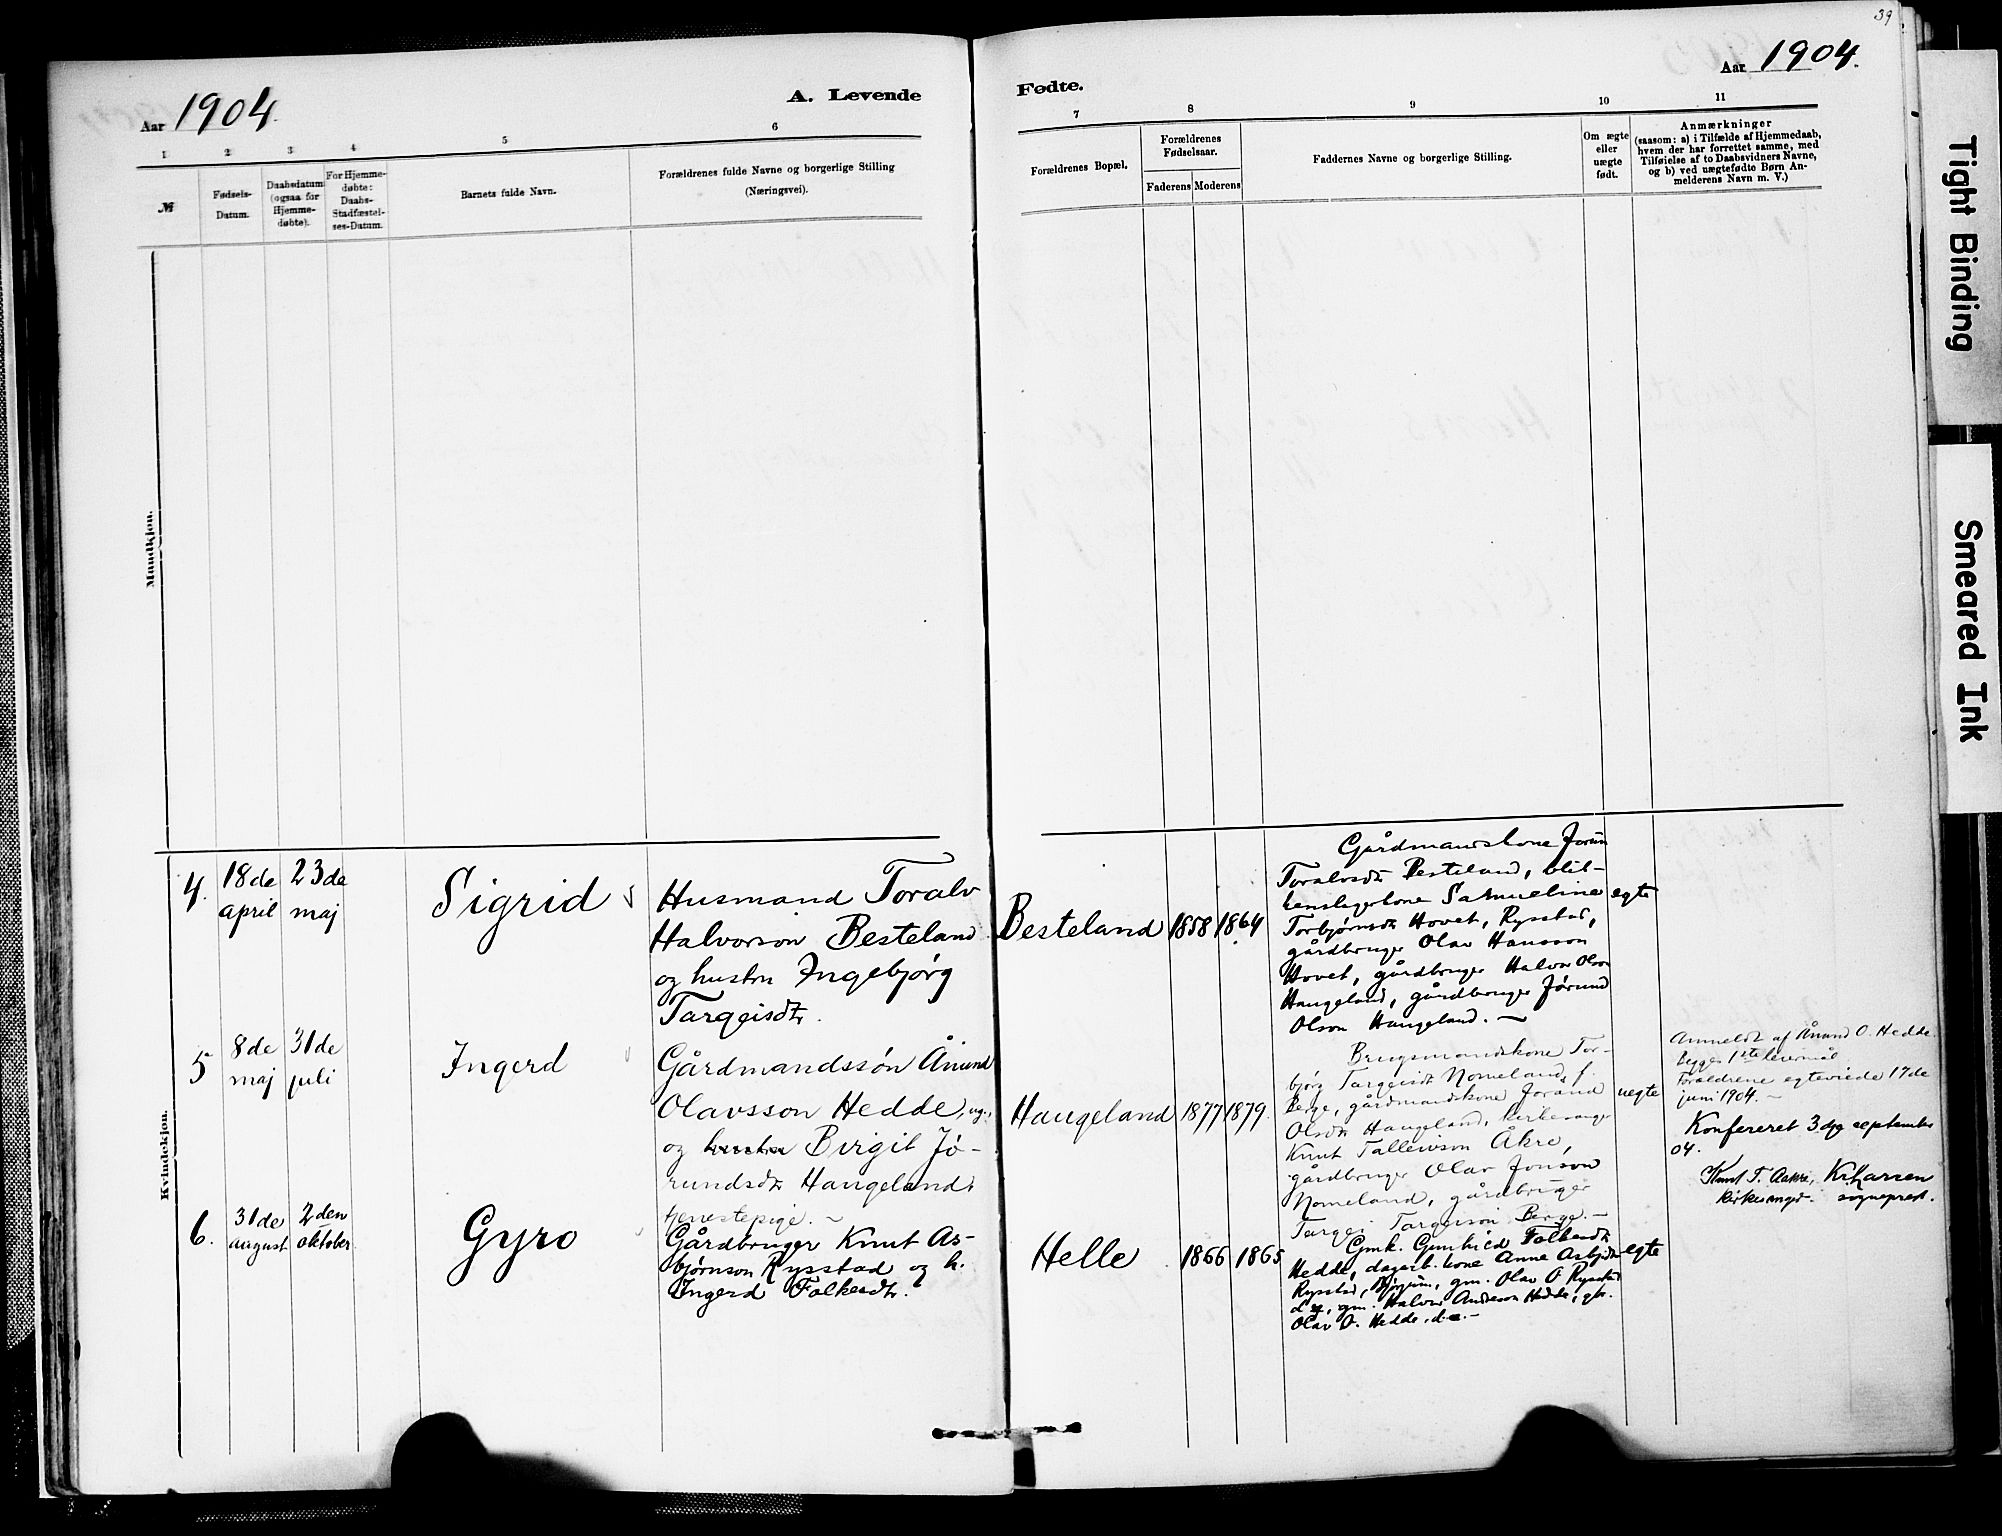 39
Aar 1904.
A. Levende
Fødte.
Aar 1904.
1
2
3
4
5
6
7
8
9
10
11
№
Fødsels-
Datum.
Daabsdatum
(ogsaa for
Hjemme-
døbte).
For Hjemme-
døbte:
Daabs-
Stadfæstel-
ses-Datum.
Barnets fulde Navn.
Forældrenes fulde Navne og borgerlige Stilling
(Næringsvei).
Forældrenes Bopæl.
Forældrenes
Fødselsaar.
Faderens
Moderens
Faddernes Navne og borgerlige Stilling.
Om ægte
eller
uægte
født.
Anmærkninger
(saasom: a) i Tilfælde af Hjemmedaab,
hvem der har forrettet samme, med
Tilføielse af to Daabsvidners Navne,
og b) ved uægtefødte Børn An-
melderens Navn m. V.)
Mandkjøn.
Kvindekjøn.
4.
18de
april
23de
maj
Sigrid
Husmand Toralv
Halvorson Besteland
og hustru Ingebjørg
Targeisdtr.
Besteland
1858
1864
Gårdmandskone Jorun
Toralvsdtr Besteland, blik-
kenslagerkone Samueline
Torbjørnsdtr Hovet, Rysstad,
gårdbruger Olav Hansson
Hovet, gårdbruger Halvor Olson
Haugeland, gårdbruger Jørund
Olson Haugeland. —
egte
5
8de
maj
31de
juli
Ingerd
Gårdmandssøn Ånund
Olavsson Hedde, ug.,
og hustru Birgit Jø-
rundsdtr Haugeland,
tjenestepige. —
Haugeland
1877
1879.
Brugsmandskone Tor-
bjørg Targeisdtr Nomeland, f.
Berge, gårdmandskone Jorånd
Olsdtr Haugeland, kirkesanger
Knut Talleivson Åkre,
gårdbruger Olav Jonson
Nomeland, gårdbruger
Targei Targeison Berge. —
uegte
Anmeldt af Ånund O. Hedde.
Begges 1ste leiermål.
Forældrene egteviede 17de
juni 1904. —
Konfereret 3dje september
04.
Knut T. Aakre,
kirkesanger.
Kr. Larsen
sogneprest.
6.
31de
august
2den
oktober
Gyro
Gårdbruger Knut As-
bjørnson Rysstad og h.
Ingerd Folkesdtr.
Helle
1866
1865
Gmk. Gunhild Folkesdtr
Hedde, dagarb. kone Anne Asbjdtr
Rysstad, gm. Olav O Rysstad
gm. Halvor Andersson Hedde, gbr.
Olav O. Hedde
egte
Tight Binding
Smeared Ink